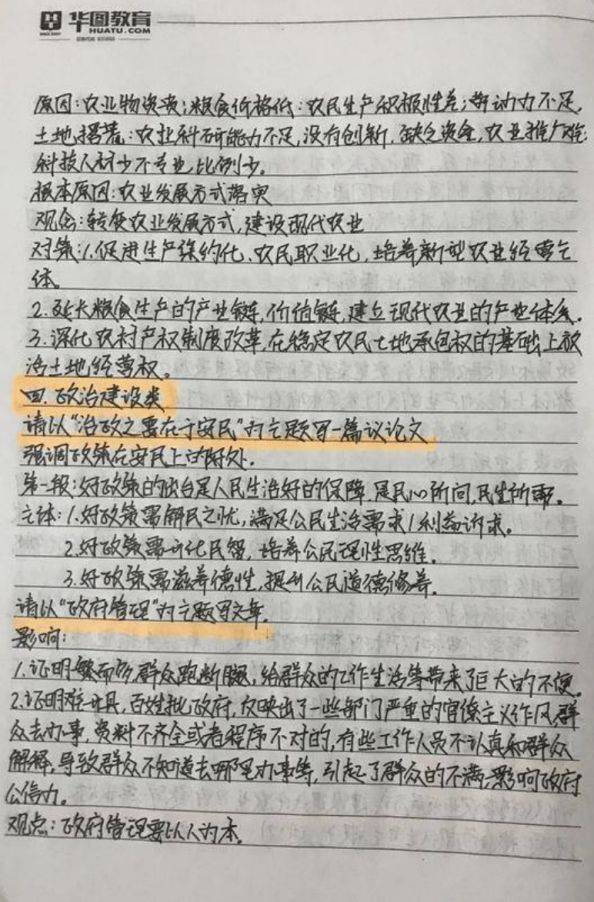 华图教育
HUATU.COM
原因:农业物资贵;粮食价格低:农民生产积极性差;劳动力不足,
土地撂荒:农业科研能力不足,没有创新,缺乏资金,农业推广难;
科技人材少不专业,比例少。
根本原因:农业发展方式落实
观念:转变农业发展方式,建设现代农业
对策:1.促进生产集约化、农民职业化,培养新型农业经营主
体。
2.延长粮食生产的产业链,价值链,建立现代农业的产业体系。
3.深化农村产权制度改革,在稳定农民土地承包权的基础上放
活土地经营权。
四.政治建设类
请以"治政之要在于安民"为主题写一篇议论文
强调政策在安民上的好处。
第一段:好政策的出台是人民生活好的保障,是民心所向,民生所
主体:1.好政策需解民之忧,满足公民生活需求/利益诉求。
2.好政策需开化民智,培养公民理性思维。
3.好政策需滋养德性,提升公民道德修养。
请以"政府管理"为主题写文章.
影响:
1.证明繁而多,群众跑断腿,给群众的工作生活等带来了巨大的不便。
2.证明难开具,百姓批政府,反映出了一些部门严重的官僚主义作风,群
众去办事,资料不齐全或者程序不对的,有些工作人员不认真和群众
解释,导致群众不知道去哪里办事等,引起了群众的不满,影响政府
公信力。
观点:政府管理要以人为本.